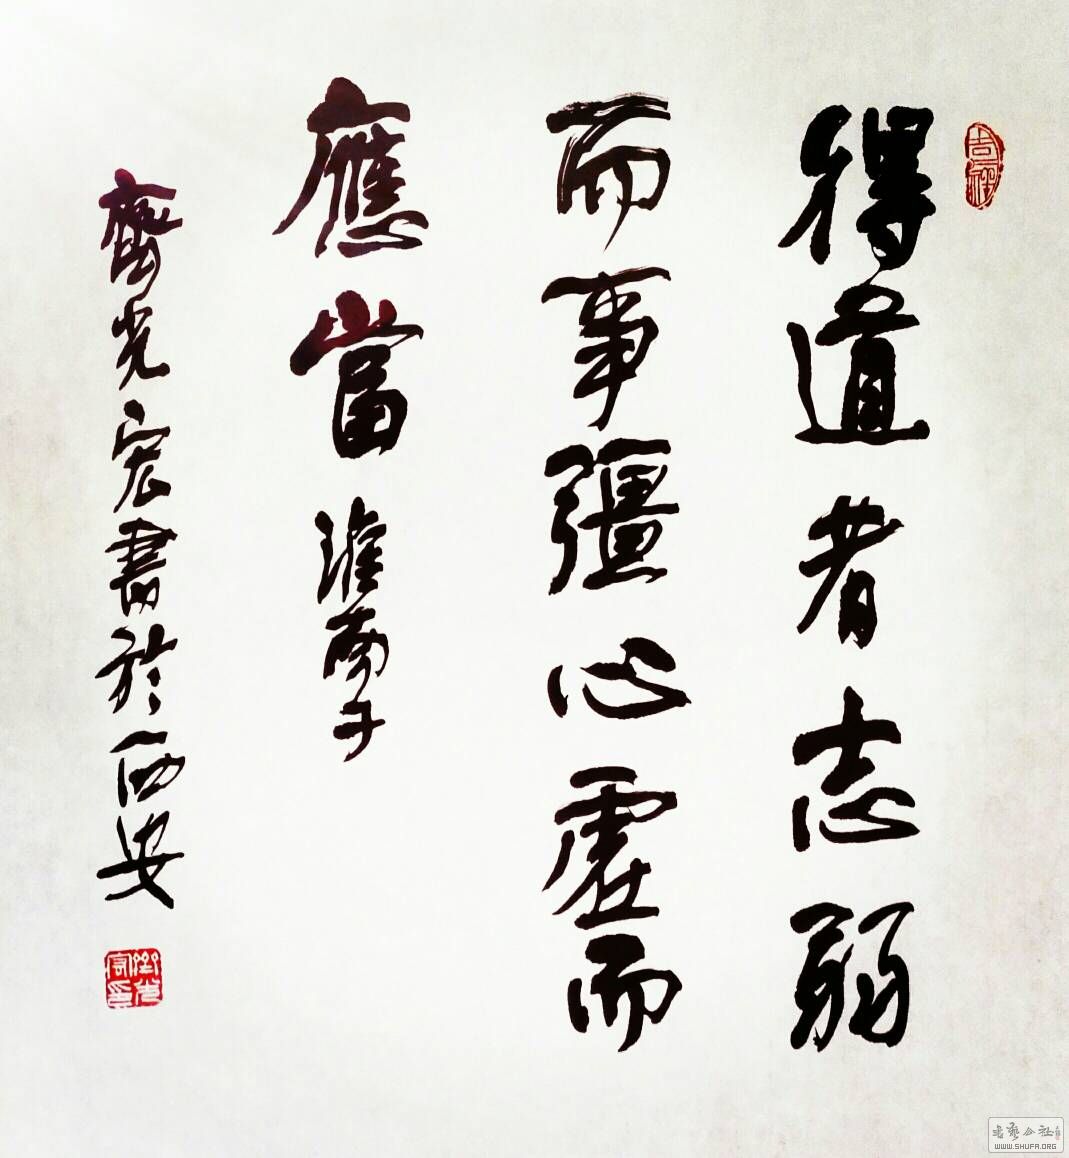 得道者志弱
而事彊心虛而
應當 淮南子
齊光宏書於西安
吉祥
WWW.SHUFA.ORG